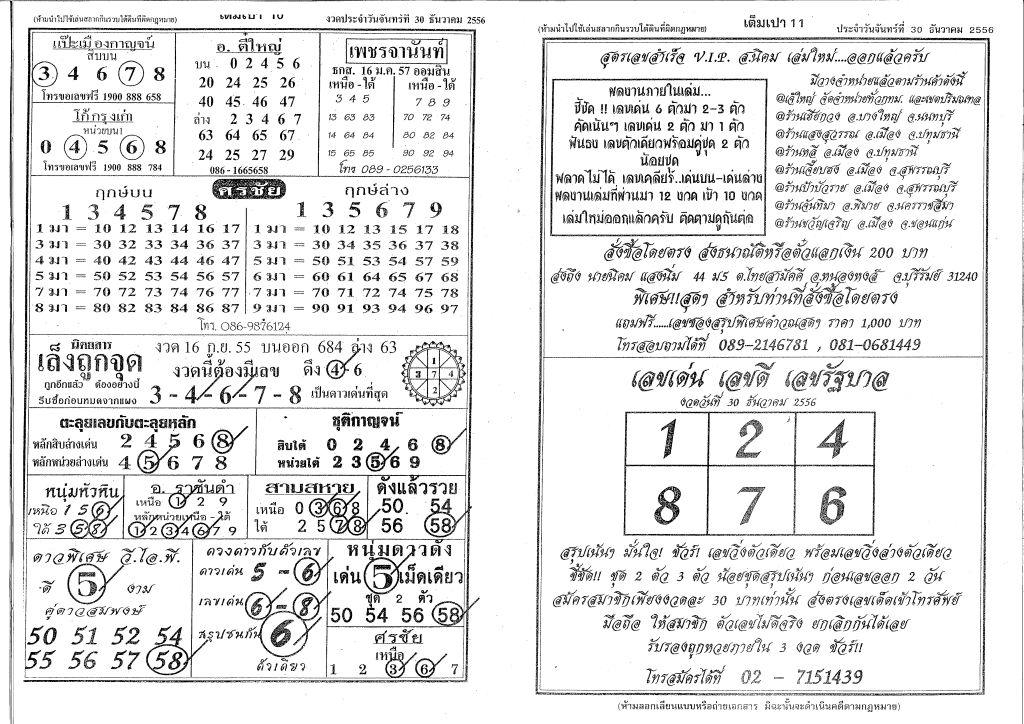 (ห้ามนำไปใช้เล่นสลากกินรวบใต้ดินที่ผิดกฎหมาย) เต็มเปา 10 งวดประจำวันจันทร์ที่ 30 ธันวาคม 2556
แป๊ะเมืองกาญจน์
สิบบน
3 4 6 7 8
โทรขอเลขฟรี 1900 888 658
โก้กรุงเก่า
หน่วยบน1
0 4 5 6 8
โทรขอเลขฟรี 1900 888 784
อ. ตี๋ใหญ่
บน 0 2 4 5 6
20 24 25 26
40 45 46 47
ล่าง 2 3 4 6 7
63 64 65 67
24 25 27 29
086-1665658
เพชรจานันท์
ธกส. 16 ม.ค. 57 ออมสิน
เหนือ - ใต้ เหนือ - ใต้
3 4 5 7 8 9
13 63 83 70 72 74
14 64 84 80 82 84
15 65 85 90 92 94
โทร 089-0256133
ศรชัย
ฤกษ์บน ฤกษ์ล่าง
1 3 4 5 7 8 1 3 5 6 7 9
1 มา = 10 12 13 14 16 17 1 มา = 10 12 13 15 17 18
3 มา = 30 31 33 34 36 37 3 มา = 30 34 35 36 37 38
4 มา = 40 42 43 44 46 47 5 มา = 50 51 53 54 57 59
5 มา = 50 52 53 54 56 57 6 มา = 60 61 64 65 67 68
7 มา = 70 72 73 74 76 77 7 มา = 70 71 72 74 75 78
8 มา = 80 82 83 84 86 87 9 มา = 90 91 93 94 96 97
โทร. 086-9876124
นิตยสาร
เล็งถูกจุด
ถูกอีกแล้ว ต้องอย่างนี้
รีบซื้อก่อนหมดจากแผง
งวด 16 ก.ย. 55 บนออก 684 ล่าง 63
งวดนี้ต้องมีเลข ดึง 4 - 6
3 - 4 - 6 - 7 - 8 เป็นดาวเด่นที่สุด
ตะลุยเลขกับตะลุยหลัก
หลักสิบล่างเด่น 2 4 5 6 8
หลักหน่วยล่างเด่น 4 5 6 7 8
ชุติกาญจน์
สิบใต้ 0 2 4 6 8
หน่วยใต้ 2 3 5 6 9
หนุ่มหัวหิน
เหนือ 1 5 6
ใต้ 3 5 8
อ. ราชันดำ
เหนือ 1 2 9
หลักหน่วยเหนือ - ใต้
1 2 3 4 6 7 9
สามสหาย
เหนือ 0 3 6 8
ใต้ 2 5 7 8
ดังแล้วรวย
50 54
56 58
ดาวพิเศษ วี.ไอ.พี.
ดี 5 งาม
คู่ดาวสมพงษ์
50 51 52 54
55 56 57 58
ดวงดาวกับตัวเลข
ดาวเด่น 5 - 6
เลขเด่น 6 - 8
สรุปชนกัน 6
ตัวเดียว
หนุ่มดาวดัง
เด่น 5 เม็ดเดียว
ชุด 2 ตัว
50 54 56 58
ศรชัย
เหนือ
1 2 3 6 7
(ห้ามนำไปใช้เล่นสลากกินรวบใต้ดินที่ผิดกฎหมาย) เต็มเปา 11 ประจำวันจันทร์ที่ 30 ธันวาคม 2556
สูตรเลขสำเร็จ V.I.P. ส.นิคม เล่มใหม่....ออกแล้วครับ
ผลงานภายในเล่ม...
ชี้ชัด !! เลขเด่น 6 ตัวมา 2-3 ตัว
คัดเน้นๆ เลขเด่น 2 ตัว มา 1 ตัว
ฟันธง เลขตัวเดียวพร้อมคู่ชุด 2 ตัว
น้อยชุด
พลาดไม่ได้ เลขเคลียร์..เด่นบน-เด่นล่าง
ผลงานเล่มที่ผ่านมา 12 งวด เข้า 10 งวด
เล่มใหม่ออกแล้วครับ ติดตามดูกันต่อ
มีวางจำหน่ายแล้วตามร้านค้าดังนี้
@เจ๊ใหญ่ จัดจำหน่ายทั่วกทม. และเขตปริมณฑล
@ร้านเฮียกวง อ.บางใหญ่ จ.นนทบุรี
@ร้านแสงสุวรรณ อ.เมือง จ.ปทุมธานี
@ร้านหลี อ.เมือง จ.ปทุมธานี
@ร้านเจี๊ยบฮง อ.เมือง จ.สุพรรณบุรี
@ร้านป้าบัวราย อ.เมือง จ.สุพรรณบุรี
@ร้านจันทิมา อ.พิมาย จ.นครราชสีมา
@ร้านขวัญเจริญ อ.เมือง จ.ขอนแก่น
สั่งซื้อโดยตรง ส่งธนาณัติหรือตั๋วแลกเงิน 200 บาท
ส่งถึง นายนิคม แสงนิ่ม 44 ม.5 ต.ไทยสามัคคี อ.หนองหงส์ จ.บุรีรัมย์ 31240
พิเศษ!!สุดๆ สำหรับท่านที่สั่งซื้อโดยตรง
แถมฟรี.....เลขซองสรุปพิเศษคำวณสดๆ ราคา 1,000 บาท
โทรสอบถามได้ที่ 089-2146781 , 081-0681449
เลขเด่น เลขดี เลขรัฐบาล
งวดวันที่ 30 ธันวาคม 2556
1 2 4
8 7 6
สรุปเน้นๆ มั่นใจ! ชัวร์! เลขวิ่งตัวเดียว พร้อมเลขวิ่งล่างตัวเดียว
ชี้ชัด!! ชุด 2 ตัว 3 ตัว น้อยชุดสรุปเน้นๆ ก่อนเลขออก 2 วัน
สมัครสมาชิกเพียงงวดละ 30 บาทเท่านั้น ส่งตรงเลขเด็ดเข้าโทรศัพย์
มือถือ ให้สมาชิก ตัวเลขไม่ดีจริง ยกเลิกกันได้เลย
รับรองถูกหวยภายใน 3 งวด ชัวร์!!
โทรสมัครได้ที่ 02 - 7151439
(ห้ามลอกเลียนแบบหรือถ่ายเอกสาร มิฉะนั้นจะดำเนินคดีตามกฎหมาย)